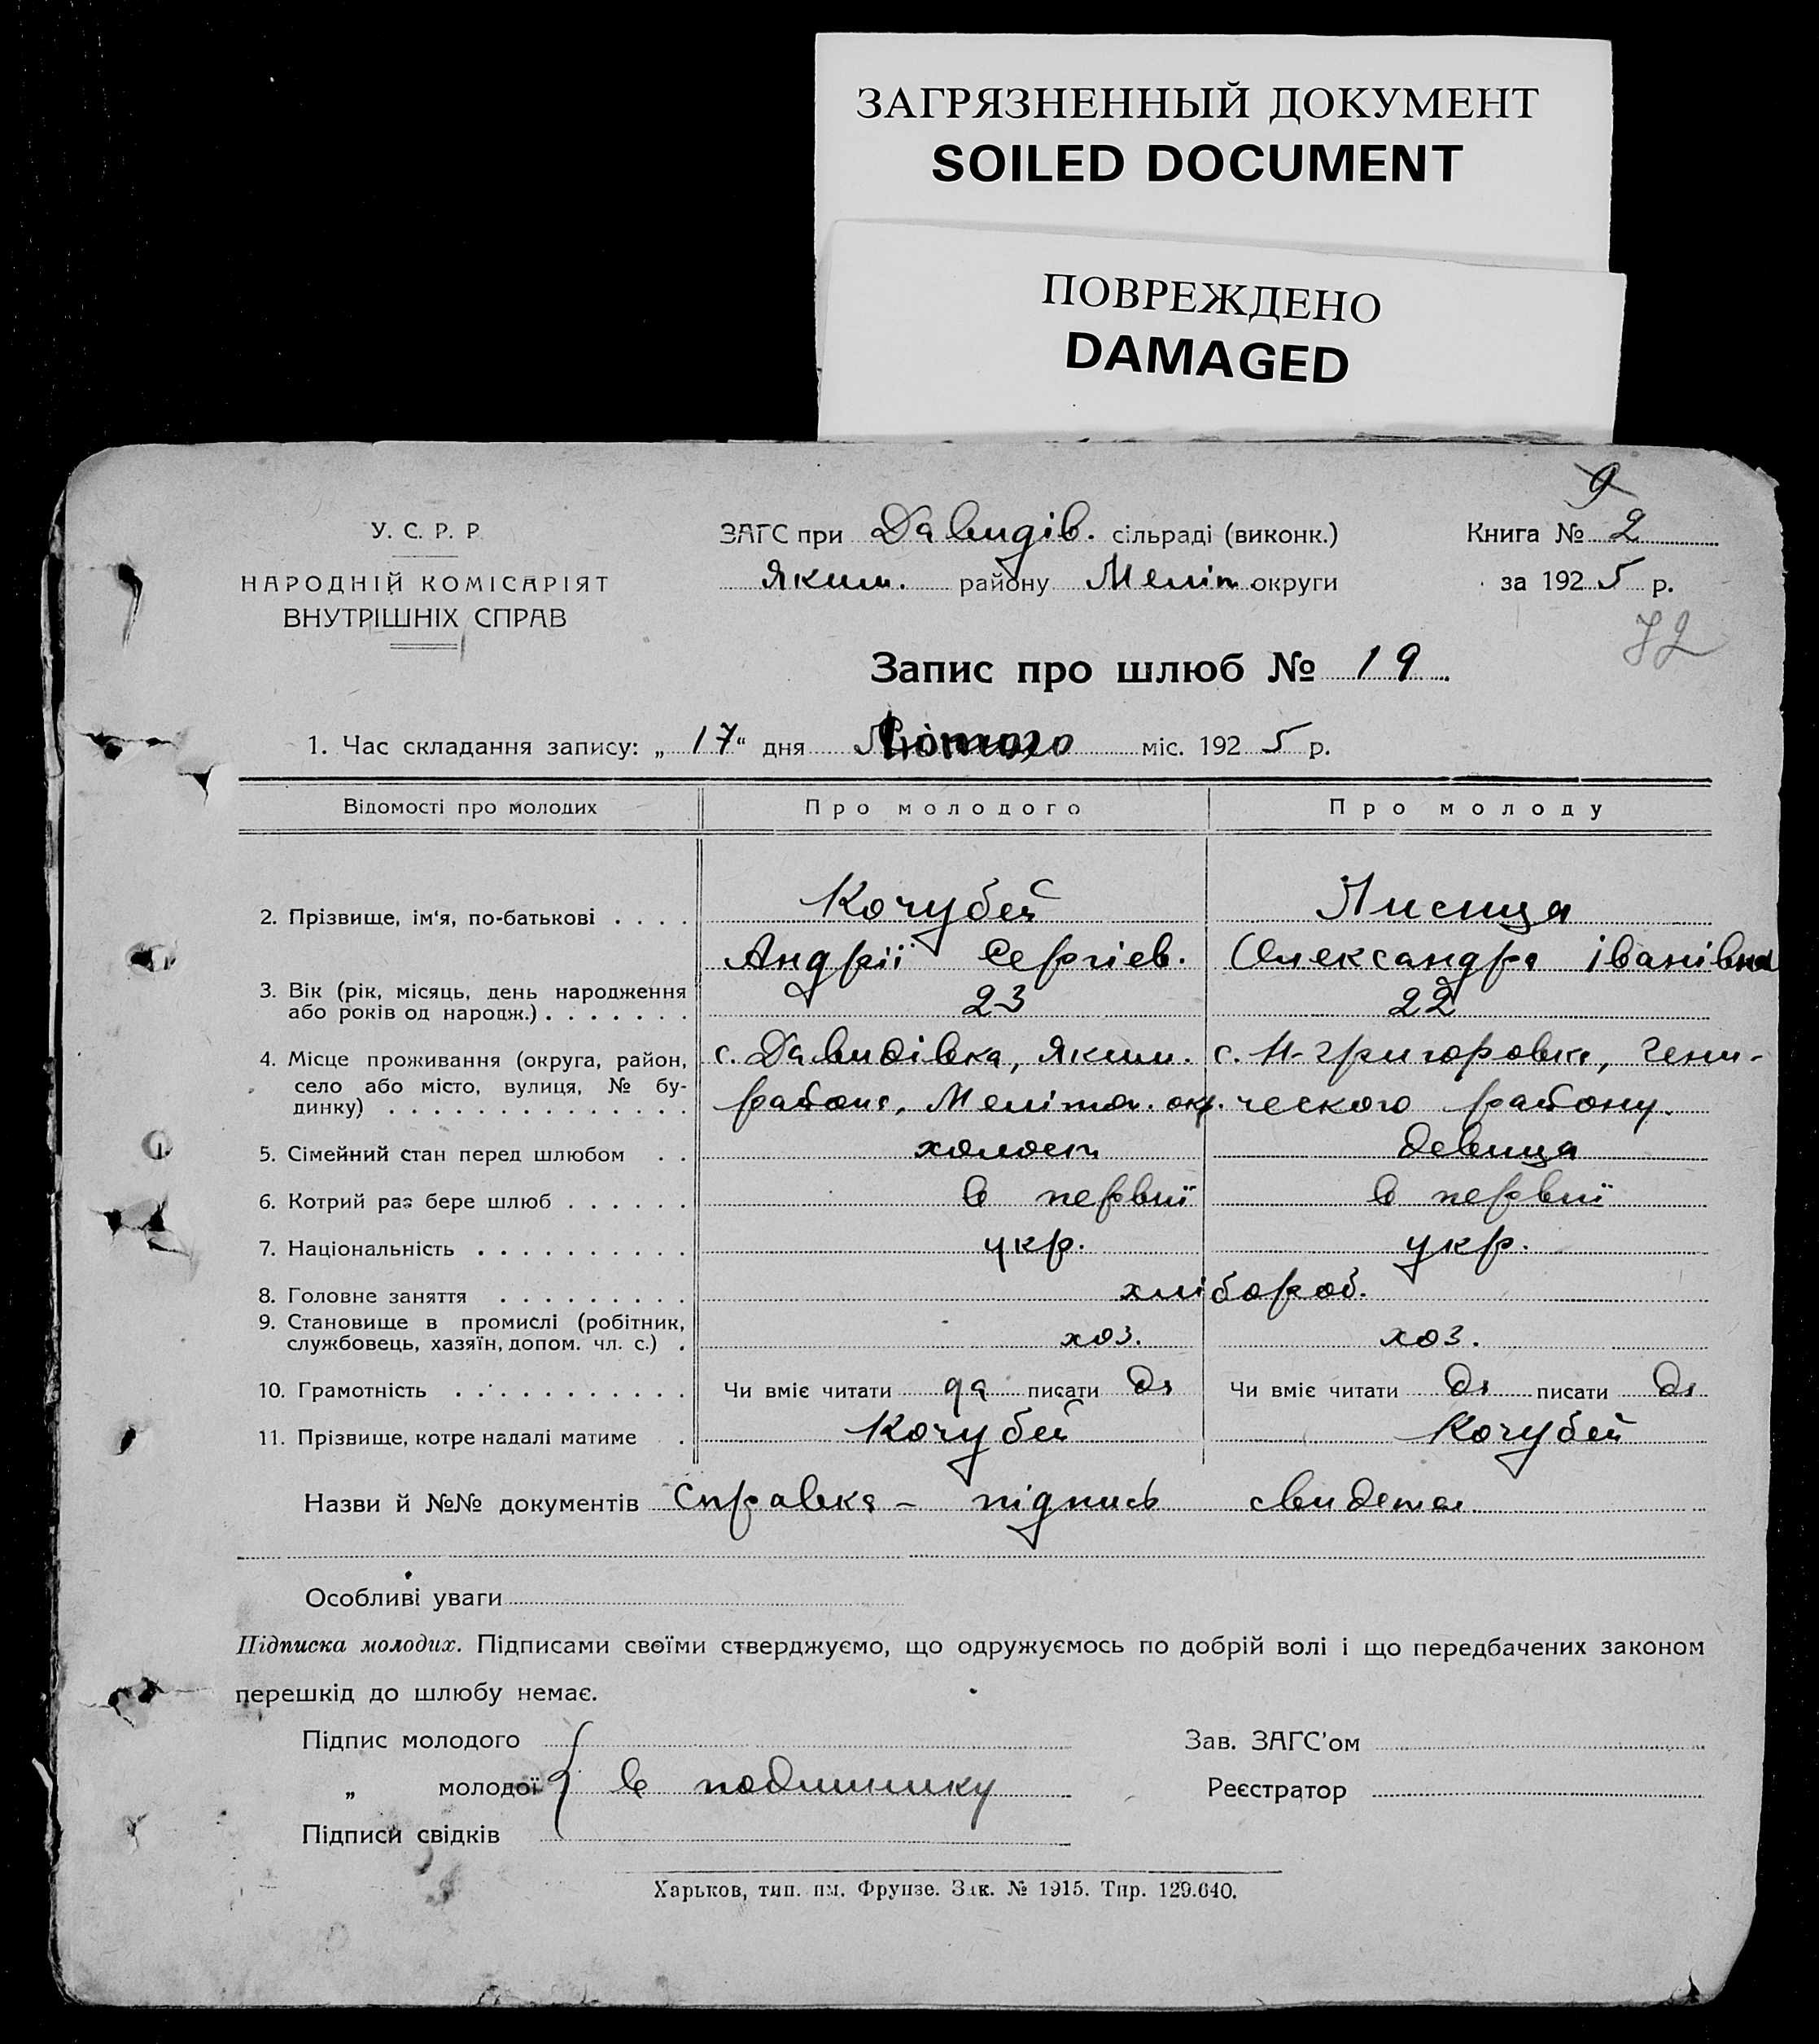 ЗАГРЯЗНЕННЫЙ ДОКУМЕНТ
SOILED DOCUMENT
ПОВРЕЖДЕНО
DAMAGED
9
У. С. Р. Р.
НАРОДНІЙ КОМІСАРІЯТ
ВНУТРІШНІХ СПРАВ
ЗАГС при Давидів. сільраді (виконк.)
Яким. району Меліт округи
Книга № 2
за 1925 р.
72
Запис про шлюб № 19
1. Час складання запису: „17“ дня Лютого міс. 1925 р.
Відомості про молодих Про молодого Про молоду
2. Прізвище, ім‘я, по-батькові . . . . Кочубей Лисица
Андрії Сергіев. Олександра Іванівна
3. Вік (рік, місяць, день народження
або років од народж.) . . . . . . . 23 22
4. Місце проживання (округа, район,
село або місто, вулиця, № бу-
динку) . . . . . . . . . . . . . .
с. Давидівка, Яким. с. Н-Григоровка, Гени-
района, Мелітоп. окр. ческого району.
5. Сімейний стан перед шлюбом . . холост девица
6. Котрий раз бере шлюб . . . . . . в первиї в первиї
7. Національність . . . . . . . . . . укр. укр.
8. Головне заняття . . . . . . . . . хлібороб.
9. Становище в промислі (робітник,
службовець, хазяїн, допом. чл. с.) . хоз. хоз.
10. Грамотність . . . . . . . . . . . Чи вміє читати да писати да Чи вміє читати да писати да
11. Прізвище, котре надалі матиме . Кочубей Кочубей
Назви й №№ документів Справка – підпись свидетел
Особливі уваги
Підписка молодих. Підписами своїми стверджуємо, що одружуємось по добрій волі і що передбачених законом
перешкід до шлюбу немає.
Підпис молодого Зав. ЗАГС’ом
„ молодої в подлиннику Реєстратор
Підписи свідків
Харьков, тип. им. Фрунзе. Зак. № 1915. Тир. 129.640.